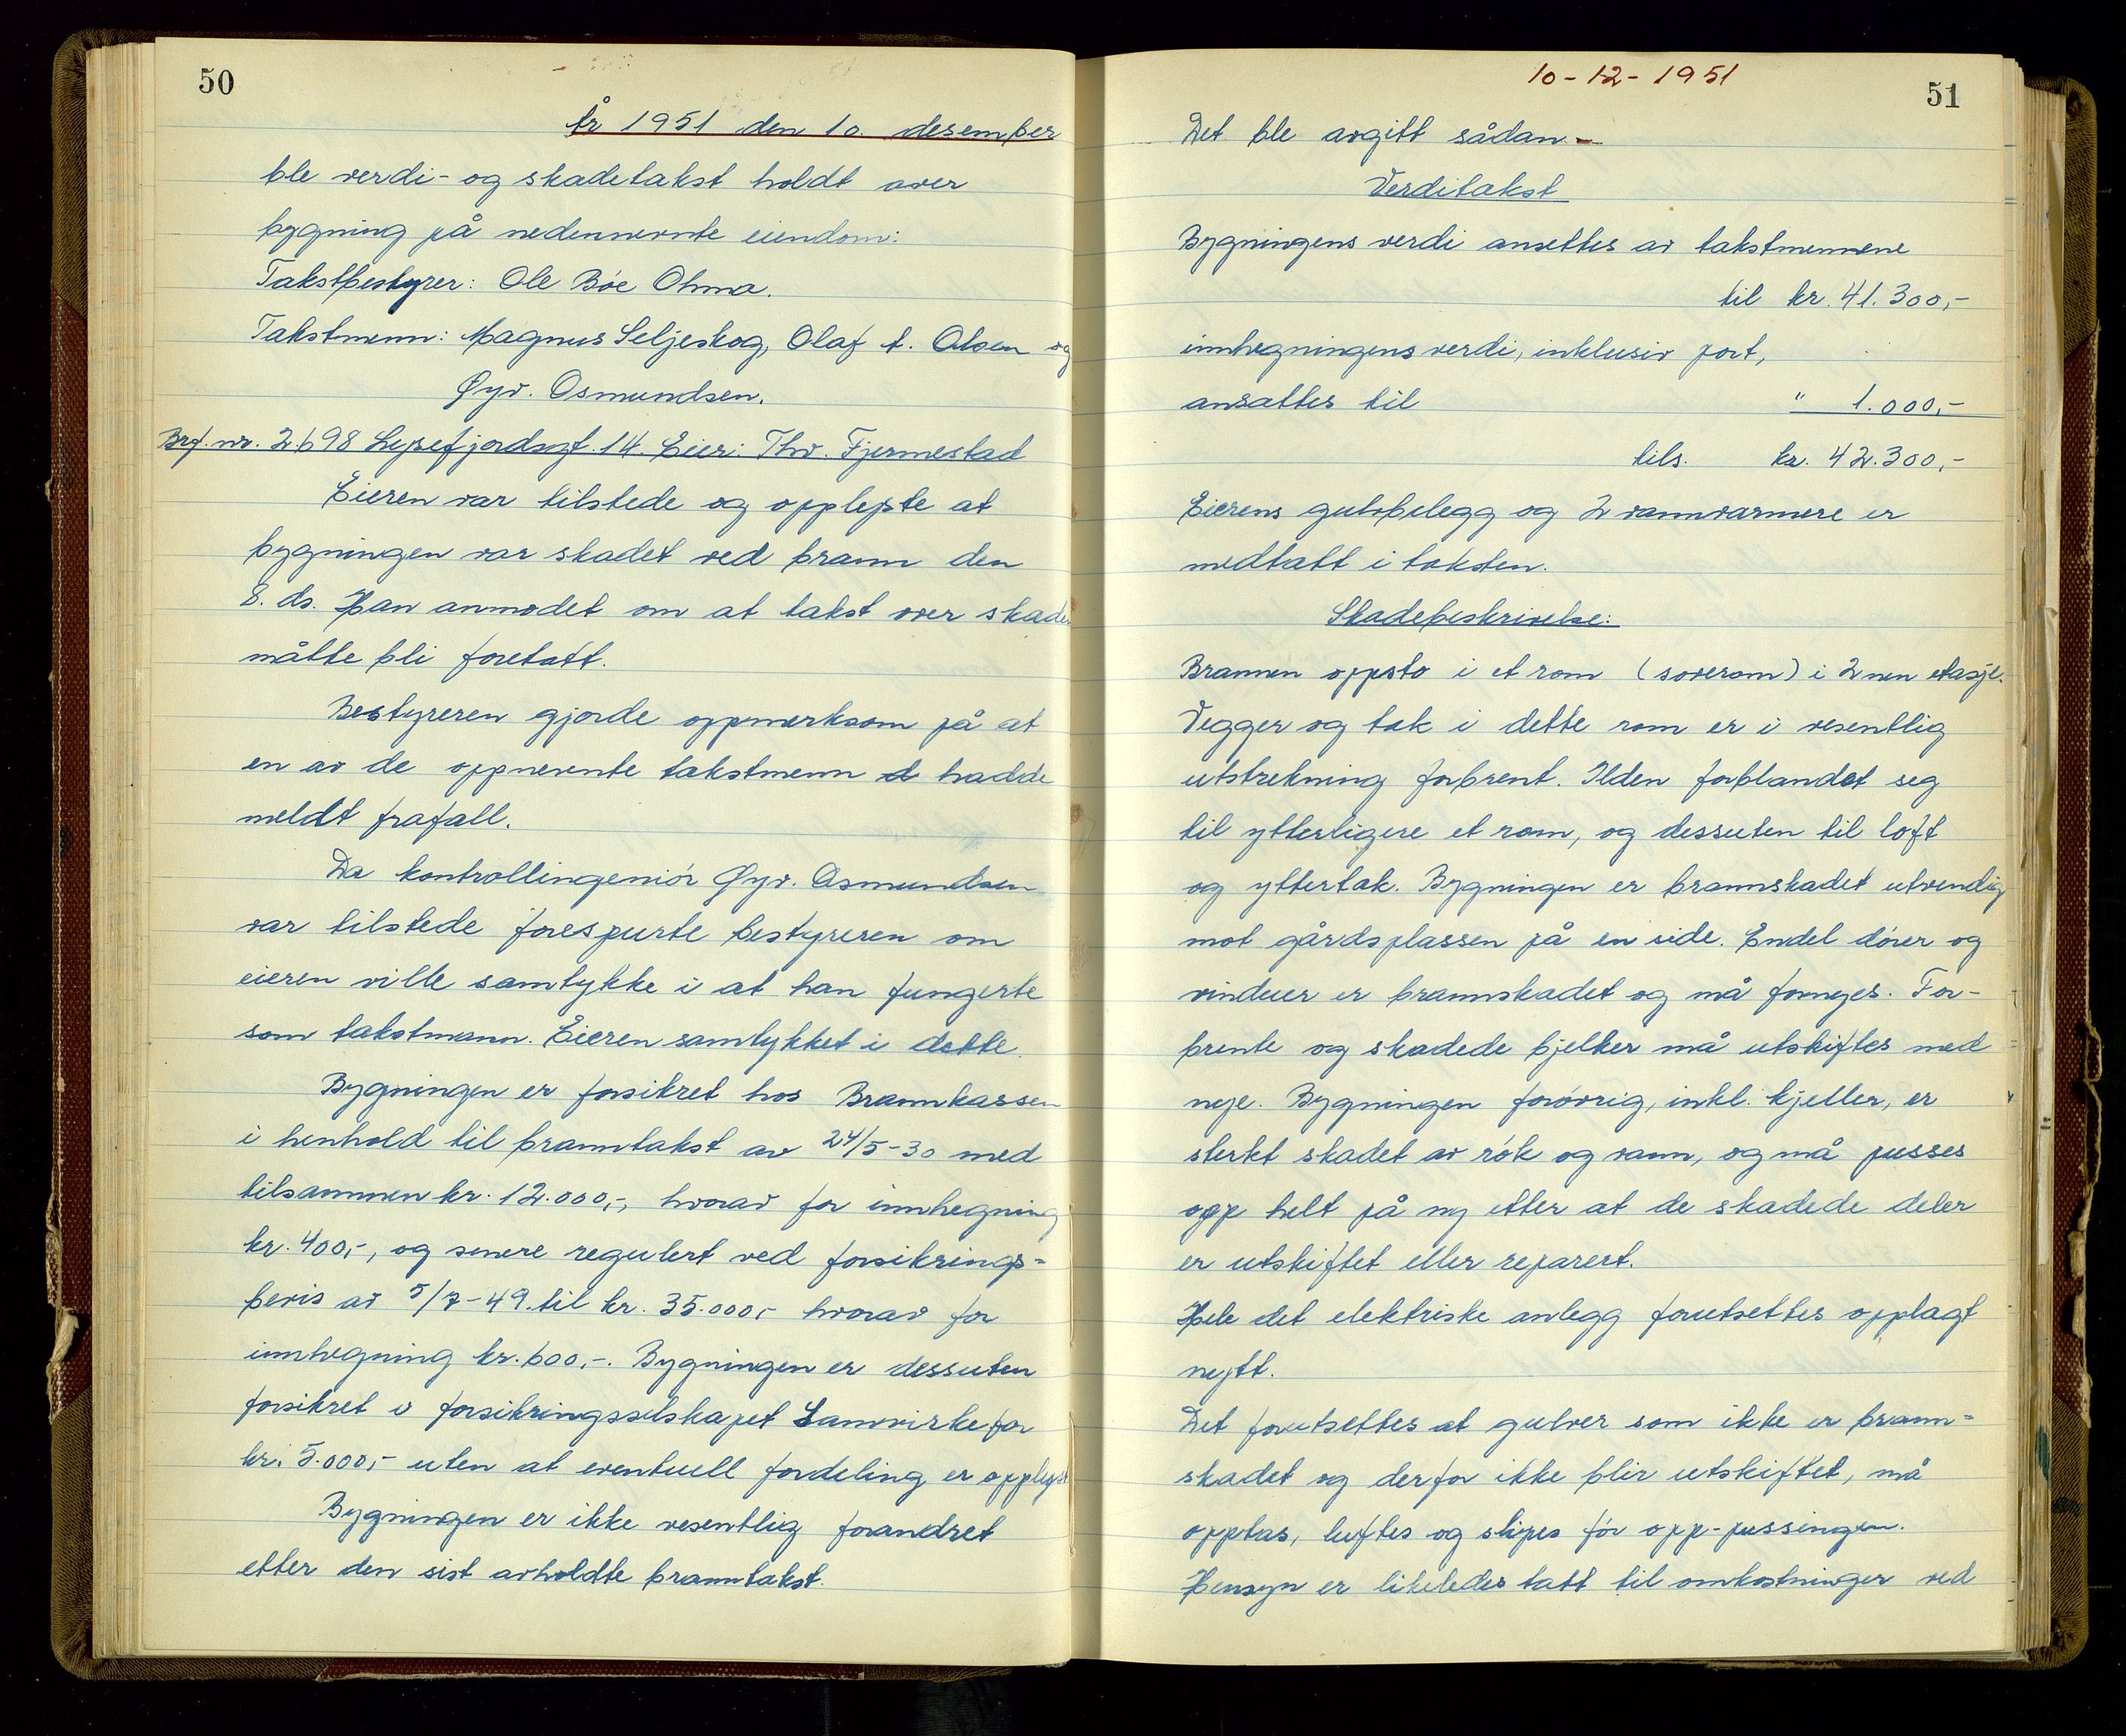 50
År 1951 den 10. desember
ble verdi- og skadetakst holdt over
bygning på nedennevnte eiendom:
Takstbestyrer: Ole Bóe Ohma.
Takstmenn: Magnus Seljeskog, Olaf A. Olsen og
Øyv. Osmundsen.
Brf. nr. 2698 Lysefjordsgt. 14. Eier: Thv. Fjermestad
Eieren var tilstede og opplyste at
bygningen var skadet ved brann den
8. ds. Han anmodet om at takst over skaden
måtte bli foretatt.
Bestyreren gjorde oppmerksom på at
en av de oppnevnte takstmenn hadde
meldt frafall.
Da kontrollingeniór Øyv. Osmundsen
var tilstede forespurte bestyreren om
eieren ville samtykke i at han fungerte
som takstmann. Eieren samtykket i dette.
Bygningen er forsikret hos Brannkassen
i henhold til branntakst av 24/5-30 med
tilsammen kr. 12.000,-, hvorav for innhegning
kr. 400,-, og senere regulert ved forsikrings=
bevis av 5/7-49. til kr. 35.000,- hvorav for
innhegning kr. 600,-. Bygningen er dessuten
forsikret i forsikringsselskapet Samvirke for
kr. 5.000,- uten at eventuell fordeling er opplyst
Bygningen er ikke vesentlig forandret
etter den sist avholdte branntakst.
10-12-1951
51
Det ble avgitt sådan-
Verditakst
Bygningens verdi ansettes av takstmennene
til kr. 41.300,-
innhegningens verdi, inklusiv port,
ansattes til " 1.000,-
tils. kr. 42.300,-
Eierens gulvbelegg og 2 vannvarmere er
medtatt i taksten.
Skadebeskrivelse:
Brannen oppsto i et rom (soverom) i 2nen etasje.
Vegger og tak i dette rom er i vesentlig
utstrekning forbrent. Ilden forplandet seg
til ytterligere et rom, og dessuten til loft
og yttertak. Bygningen er brannskadet utvendig
mot gårdsplassen på en side. Endel dórer og
vinduer er brannskadet og må fornyes. For-
brente og skadede bjelker må utskiftes med
nye. Bygningen forøvrig, inkl. kjeller, er
sterkt skadet av rók og vann, og må pusses
opp helt på ny etter at de skadede deler
er utskiftet eller reparert.
Hele det elektriske anlegg forutsettes opplagt
nytt.
Det forutsettes at gulver som ikke er brann=
skadet og derfor ikke blir utskiftet, må
opptas, luftes og slipes fór opp-pussingen.
Hensyn er likeledes tatt til omkostninger ved